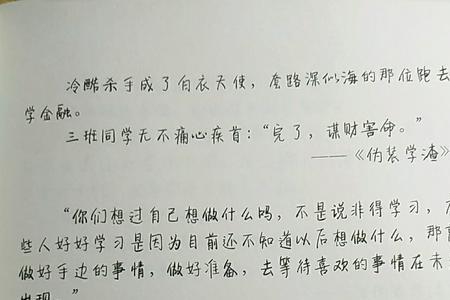 冷酷杀手成了白衣天使，套路深似海的那位跑去
学金融。
三班同学无不痛心疾首：“完了，谋财害命。”
——《伪装学渣》
“你们想过自己想做什么吗，不是说非得学习，
些人好好学习是因为目前还不知道以后想做什么，那
做好手边的事情，做好准备，去等待喜欢的事情在未
出现。”